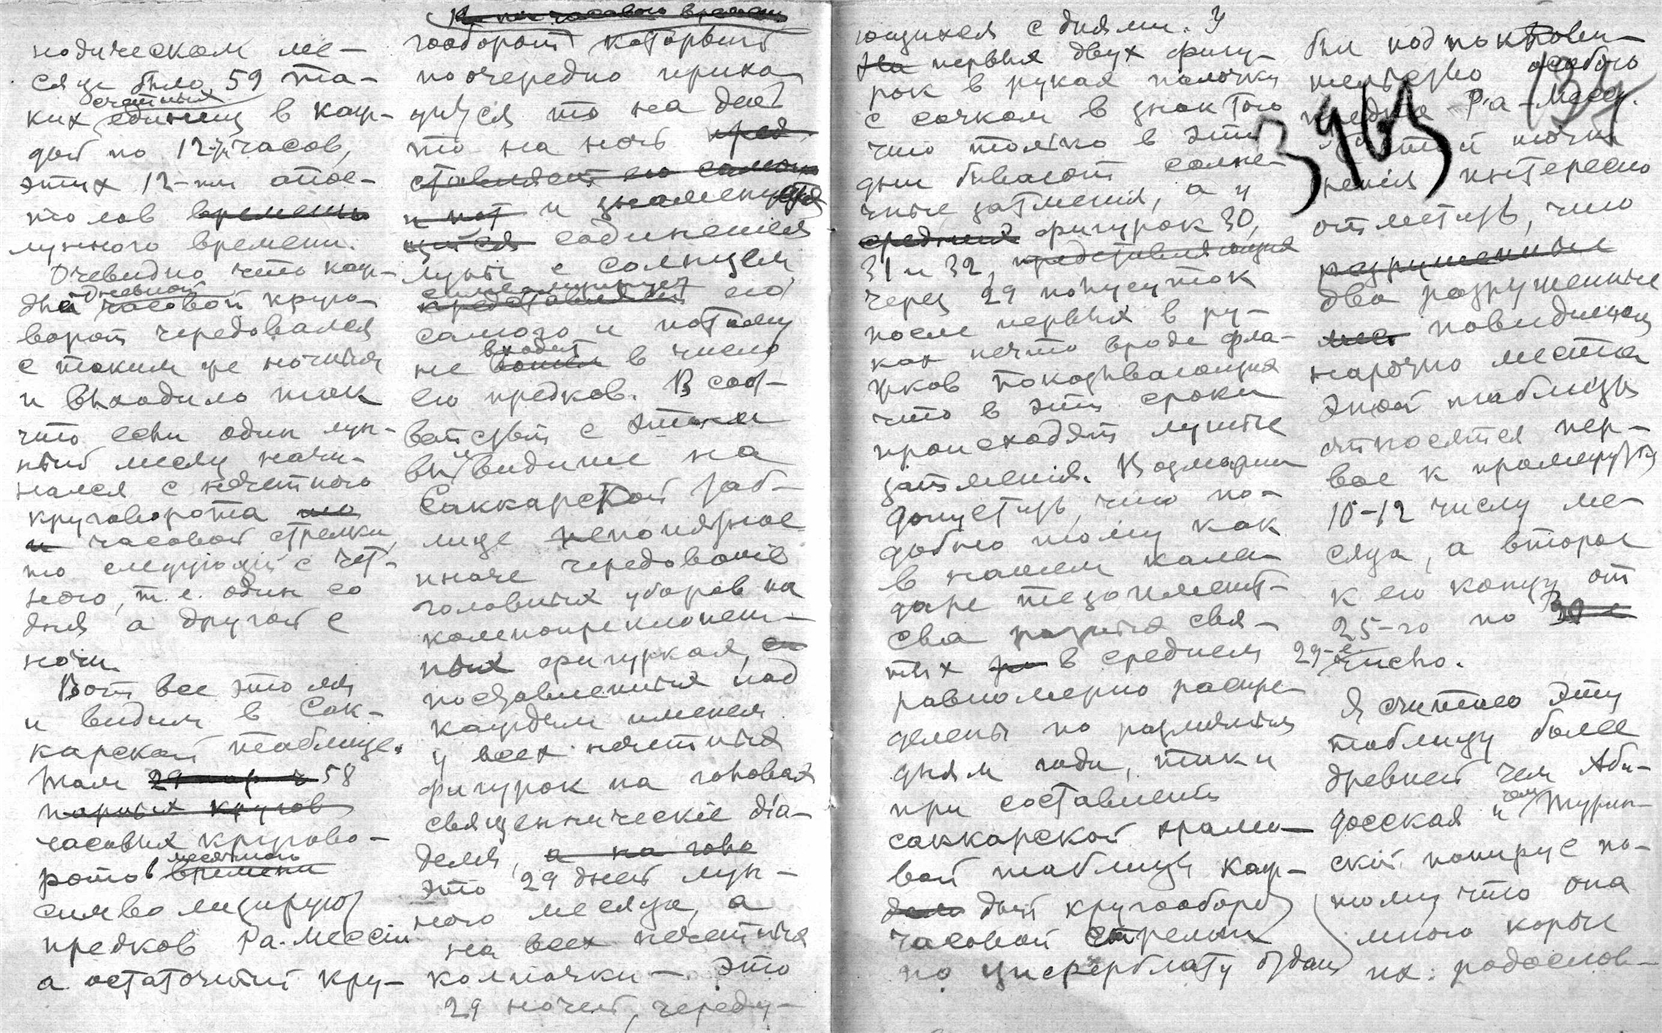 нодическом ме-
сяце было 59 та-
ких счетных единиц в каж-
дой по 12-ти часов,
этих 12-ти апос-
толов времени
лунного времени.
Очевидно что каж-
дый дневной часовой круго-
ворот чередовался
с таким же ночным
и выходило так
что если один лун-
ный месяц начи-
нался с нечетного
круговорота
часовой стрелки,
то следующий с чет-
ного, т.е. один со
дня, а другой с
ночи.
Вот все это мы
и видим в Сак-
карской таблице.
Там 58
парных кругов
часовых кругово-
ротов месячного времени
символизируют
предков Ра-Мессии
а остаточный кру-
гооборот который
поочередно прихо
дится то на день
то на ночь пред-
ставляет его самого
и знаменует
соединение
луны с солнцем
символизирует его
самого и потому
не входит в число
его предков. В соот-
ветствии с этим
вы видите на
Саккарской таб-
лице непонятное
иначе чередование
головных уборов на
коленопреклонен-
ных фигурках,
поставленных над
каждым именем
у всех нечетных
фигурок на головах
священнические диа-
демы, а на голо
это 29 дней лун-
ного месяца, а
на всех нечетных
колпачки — это
29 ночей, череду-
ющихся с днями. У
первых двух фигу-
рок в руках палочки
с сочком в знак того
что только в эти
дни бывают солне-
чные затмения, а у
средних фигурок 30,
31 и 32, представляющих
через 29 полусуток
после первых в ру-
ках нечто вроде фла-
жков показывающих
что в эти сроки
происходят лунные
затмения. Возможно
допустить, что по-
добно тому как
в нашем кален-
даре тезоименит-
ства разных свя-
тых в среднем
равномерно распре-
делены по различным
дням года, так и
при составлении
саккарской храмо-
вой таблицы каж-
дый кругооборот
часовой стрелки
по циферблату
был под покрови-
тельство особого
предка Ра-Месс.
3963
134
интересно
отметить, что
разрушенные
два разрушенные
повидимому
нарочно места
этой таблицы
относятся пер-
вое к промежутку
10-12 числу ме-
сяца, а второе
к его концу от
25-го по 30
29-е число.
Я считаю эту
таблицу более
древней чем Аби-
досская и чем Турин-
ский папирус по-
тому что она
много короче
их: родослов-